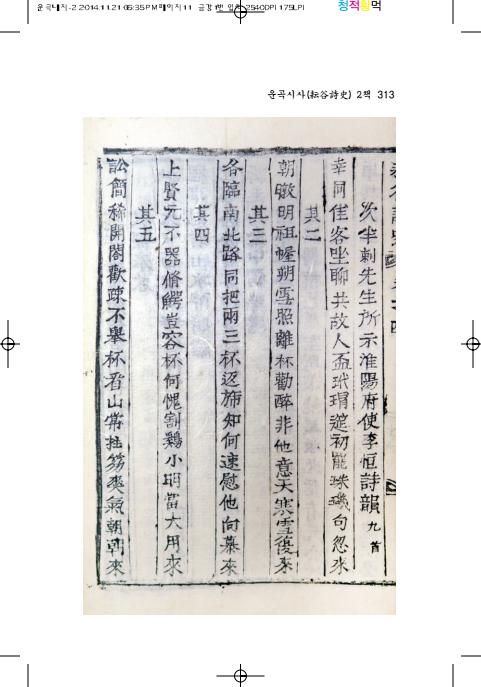 운곡대지-2 2014.11.21 05:35 PM 페이지11 금강1반 2540DPI 175LPI
청적황먹
운곡시사(耘谷詩史) 2책 313
次半刺先生所示淮陽府使李恒詩韻 九首
幸同佳客坐聊共故人盃玳瑁筵初罷珠璣句忽來
其二
朝暾明祖幄朔雪照離杯勸醉非他意天寒雪復來
其三
各臨南北路同把兩三杯返旆知何速慰他向慕來
其四
上賢元不器脩鰐豈容杯何愧割鷄小明當大用來
其五
訟簡稀開閤歡疎不擧杯看山常拄笏爽氣朝朝來